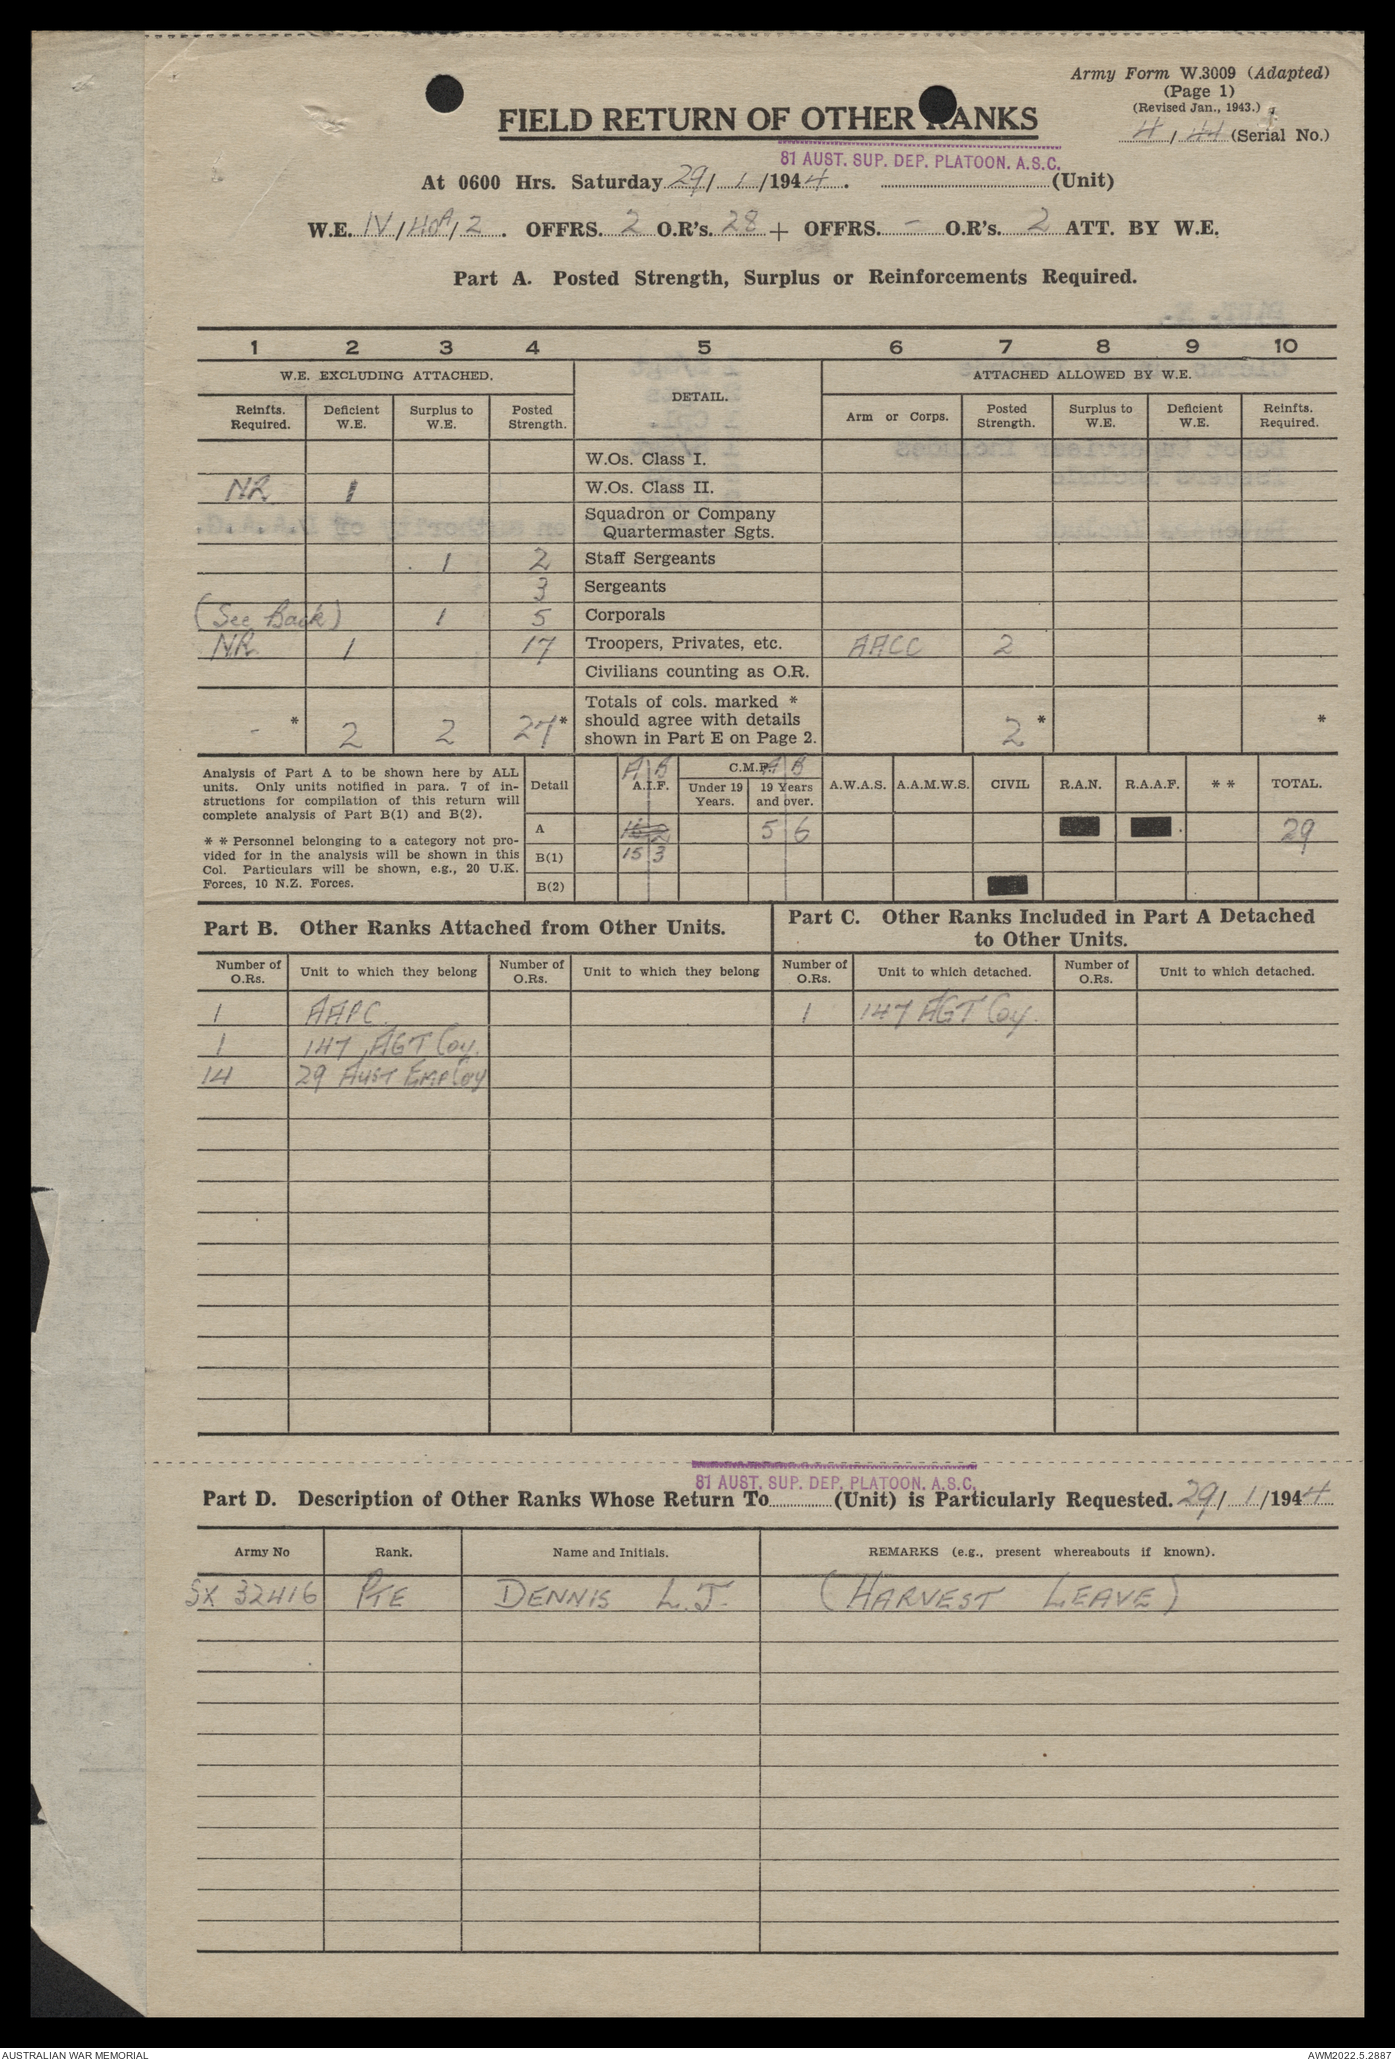 Army Form W.3009 (Adapted)
(Page 1)
(Revised Jan., 1943.)
4 / 44 (Serial No.)
FIELD RETURN OF OTHER RANKS
81 AUST. SUP. DEP. PLATOON. A.S.C.
At 0600 Hrs. Saturday 29 / 1 /1944. (Unit)
W.E. IV / HQA / 2. OFFRS. 2 O.R's. 28 + OFFRS. - O.R's. 2 ATT. BY W.E.
Part A. Posted Strength, Surplus or Reinforcements Required.
1 2 3 4 5 6 7 8 9 10
W.E. EXCLUDING ATTACHED. DETAIL. ATTACHED ALLOWED BY W.E.
Reinfts. Required. Deficient W.E. Surplus to W.E. Posted Strength. Arm or Corps. Posted Strength. Surplus to W.E. Deficient W.E. Reinfts. Required.
W.Os. Class I.
NR 1 W.Os. Class II.
Squadron or Company
Quartermaster Sgts.
1 2 Staff Sergeants
3 Sergeants
(See Back) 1 5 Corporals
NR 1 17 Troopers, Privates, etc. AACC 2
Civilians counting as O.R.
Totals of cols. marked *
should agree with details
- * 2 2 27* shown in Part E on Page 2. 2 * *
Analysis of Part A to be shown here by ALL
units. Only units notified in para. 7 of in-
structions for compilation of this return will
complete analysis of Part B(1) and B(2).
* * Personnel belonging to a category not pro-
vided for in the analysis will be shown in this
Col. Particulars will be shown, e.g., 20 U.K.
Forces, 10 N.Z. Forces.
Detail A B A.I.F. C.M.F. A B Under 19 Years. 19 Years and over. A.W.A.S. A.A.M.W.S. CIVIL R.A.N. R.A.A.F. * * TOTAL.
A 5 6 29
B(1) 15 3
B(2)
Part B. Other Ranks Attached from Other Units.
Part C. Other Ranks Included in Part A Detached
to Other Units.
Number of O.Rs. Unit to which they belong Number of O.Rs. Unit to which they belong Number of O.Rs. Unit to which detached. Number of O.Rs. Unit to which detached.
1 AAPC. 1 147 AGT Coy.
1 147 AGT Coy.
14 29 AUST EMP Coy
81 AUST. SUP. DEP. PLATOON. A.S.C.
Part D. Description of Other Ranks Whose Return To (Unit) is Particularly Requested. 29 / 1 /1944
Army No Rank. Name and Initials. REMARKS (e.g., present whereabouts if known).
SX 32416 PTE DENNIS L.J. (HARVEST LEAVE)
AUSTRALIAN WAR MEMORIAL AWM2022.5.2887